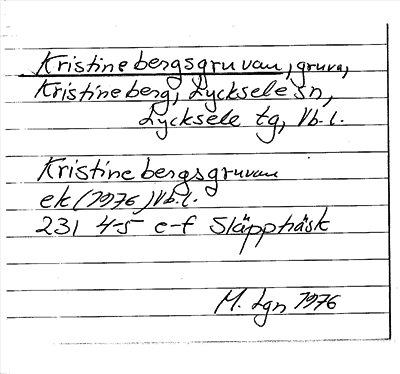 Kristinebergsgruvan, gruva,
Kristineberg, Lycksele sn,
Lycksele tg, Vb. l.
Kristinebergsgruvan
ek (1976) Vb. l.
231 4-5 e-f Släppträsk
M. Lgn 1976